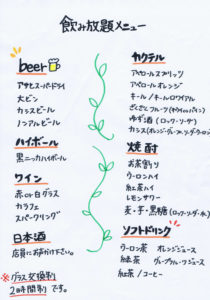 飲み放題メニュー
beer
アサヒスーパードライ
大ビン
カシスビール
ノンアルビール
ハイボール
黒ニッカハイボール
ワイン
赤or白グラス
カラフェ
スパークリング
日本酒
店員にお声がけ下さい。
※グラス交換制
2時間制です。
カクテル
アペロールスプリッツ
アペロールオレンジ
キール/キールロワイヤル
ざくざくフルーツ
ゆず酒(ロック・ソーダ)
カシス(オレンジ・グレープ・ソーダ・ウーロン)
焼酎
お茶割り
ウーロンハイ
紅茶ハイ
レモンサワー
麦・芋・黒糖(ロック・ソーダ・水)
ソフトドリンク
ウーロン茶 オレンジジュース
緑茶
紅茶/コーヒー